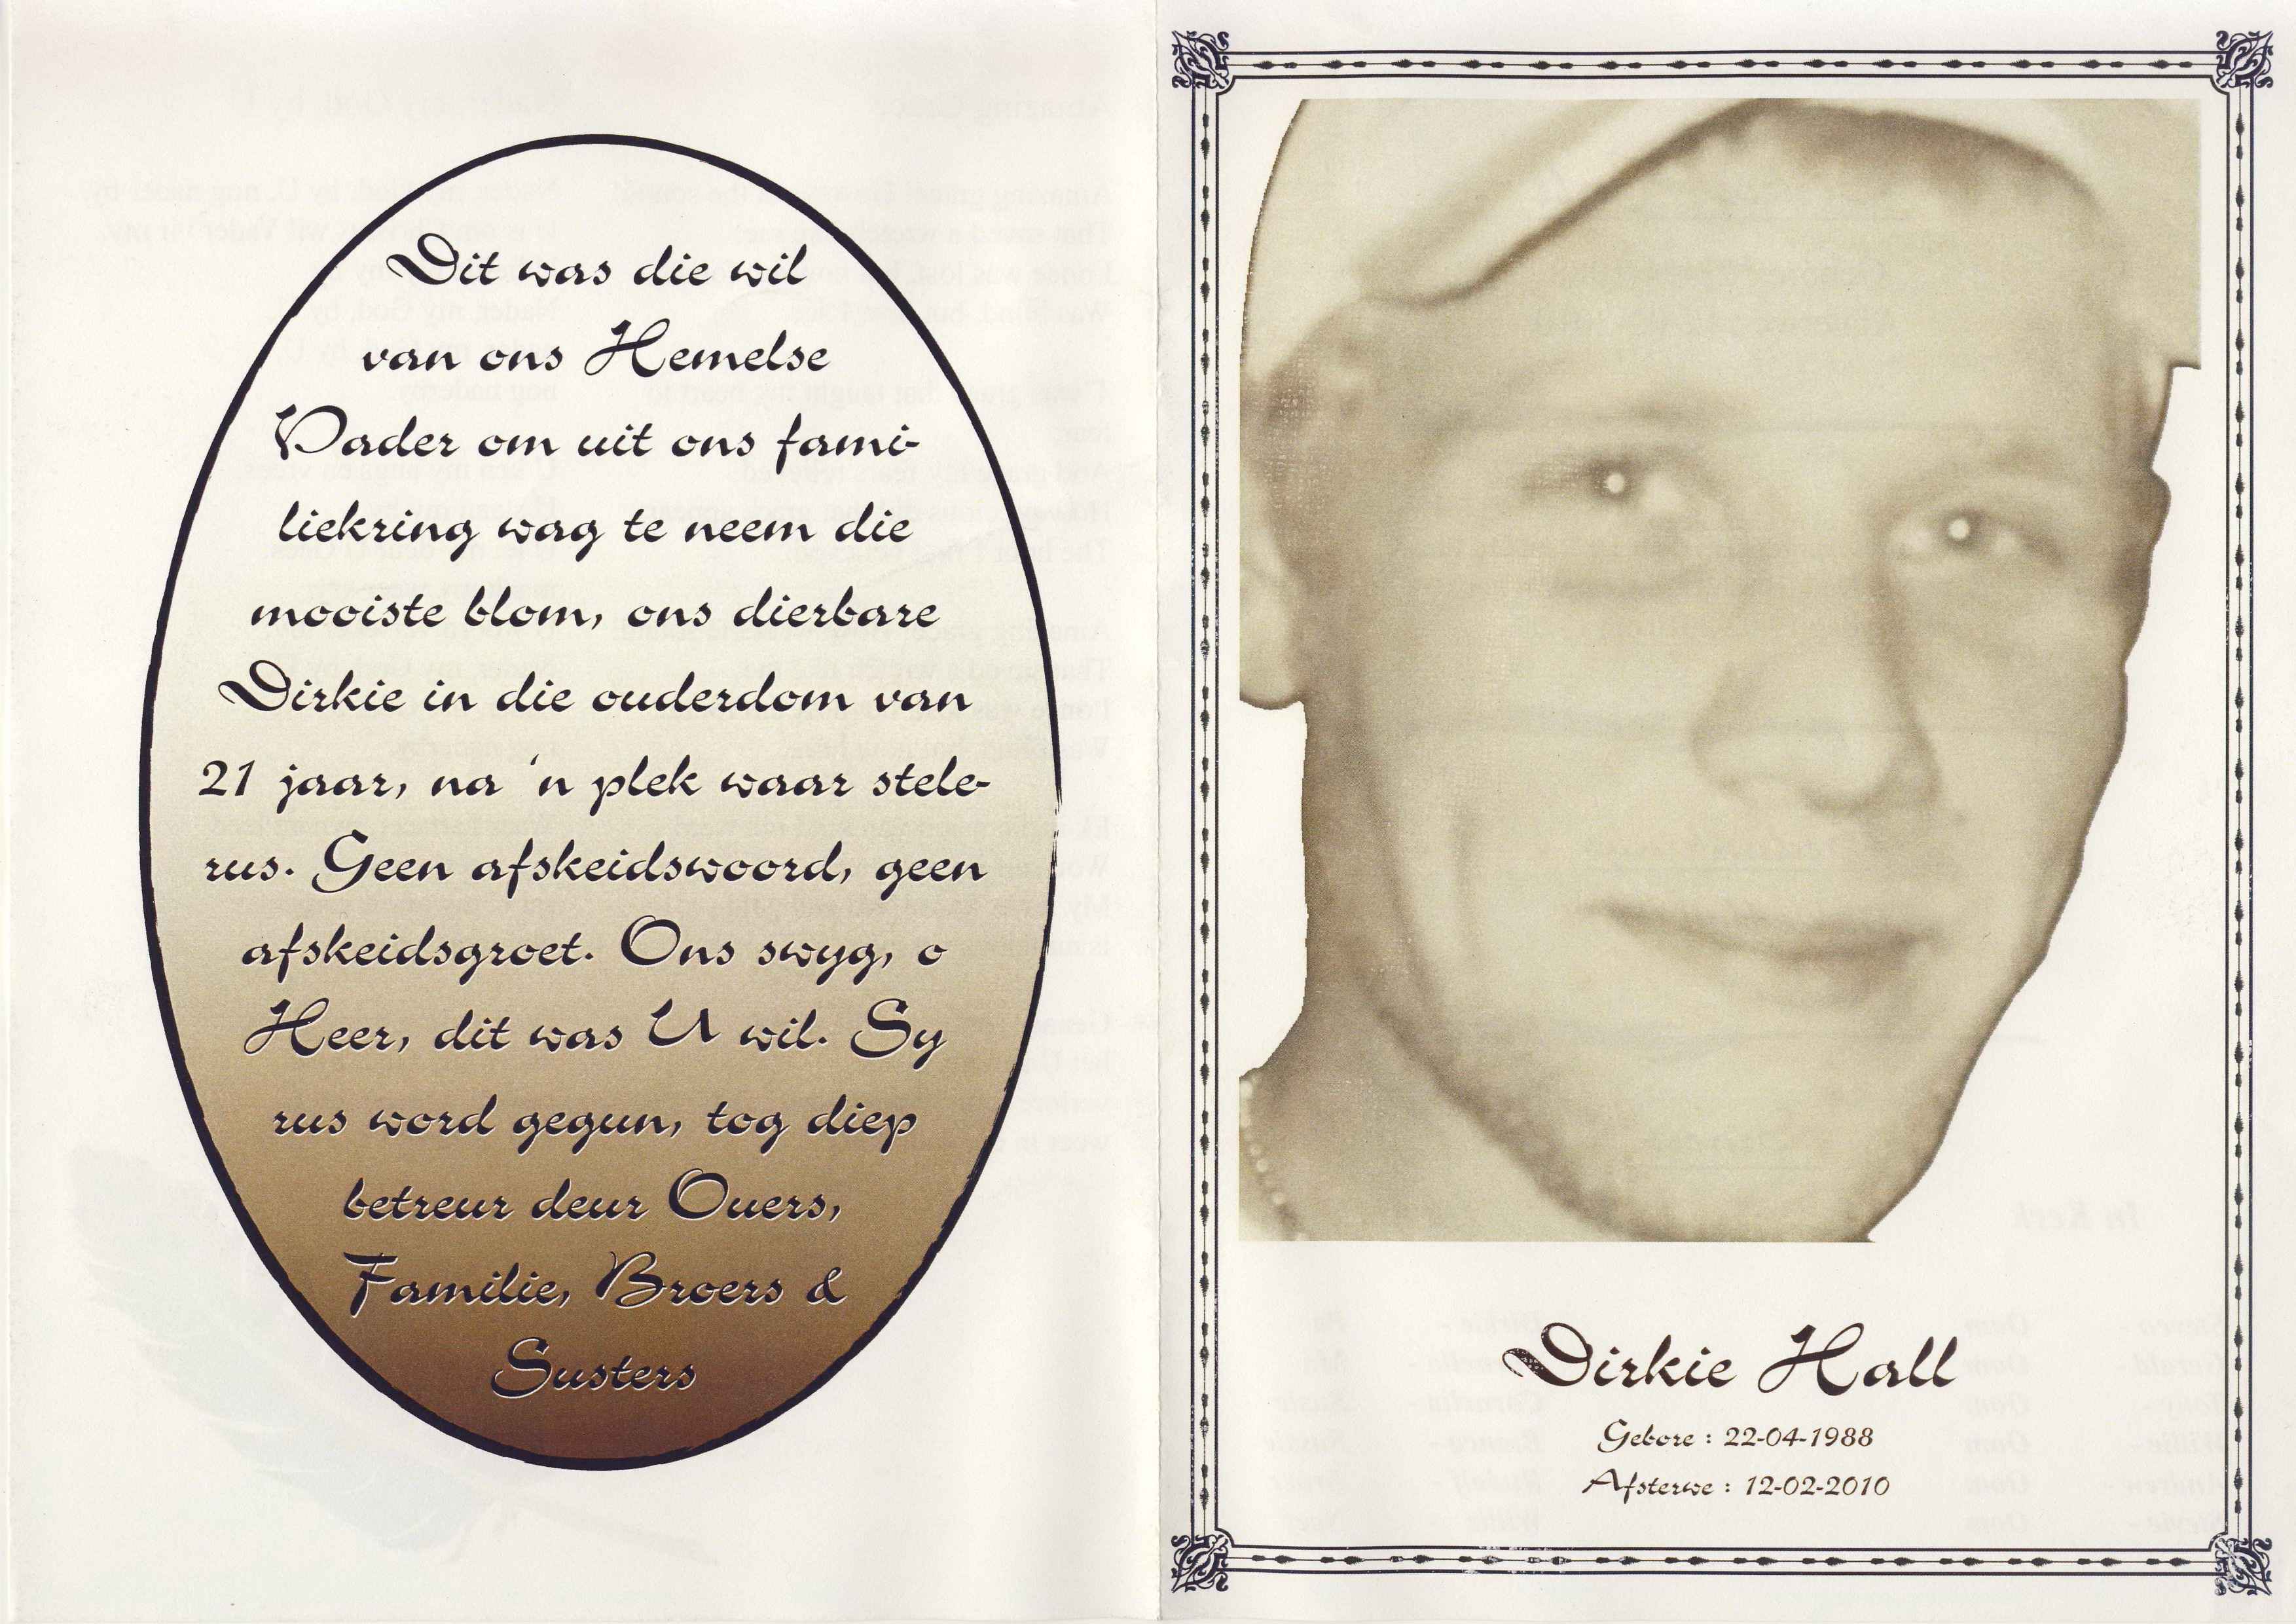 Dit was die wil
van ons Hemelse
Vader om uit ons fami-
liekring wag te neem die
mooiste blom, ons dierbare
Dirkie in die ouderdom van
21 jaar, na 'n plek waar stele-
rus. Geen afskeidswoord, geen
afskeidsgroet. Ons swyg, o
Heer, dit was U wil. Sy
rus word gegun, tog diep
betreur deur Ouers,
Familie, Broers &
Susters
Dirkie Hall
Gebore : 22-04-1988
Afsterwe : 12-02-2010